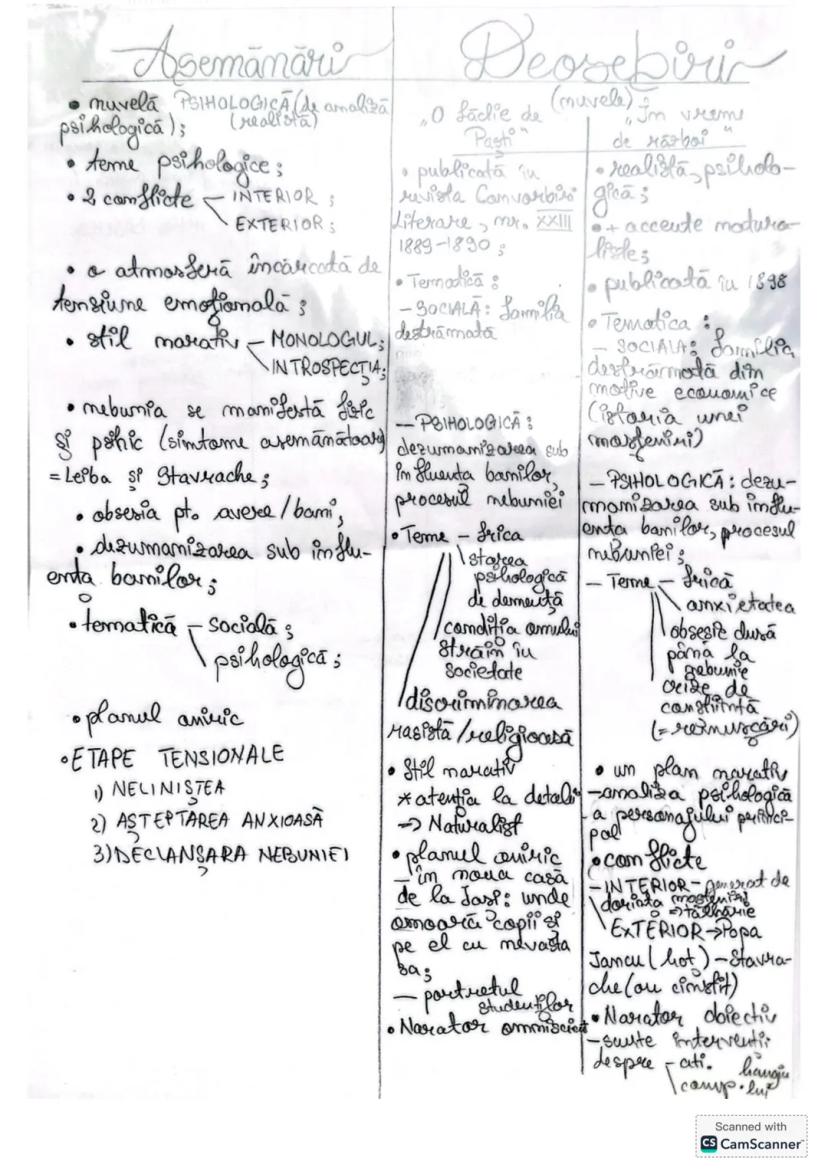 Asemănări
• nuvelă PSIHOLOGICĂ (de analiză
psihologică); (realistă)
• teme psihologice;
• 2 conflicte – INTERIOR;
EXTERIOR;
• o atmosferă încărcată de
tensiune emoțională;
• stil narativ – MONOLOGUL;
INTROSPECȚIA;
• nebunia se manifestă fizic
și psihic (simtome asemănătoare)
= Leiba și Stavrache;
• obsesia pt. avere/bani;
• dezumanizarea sub influ-
ența banilor;
• tematică – socială;
psihologică;
• planul oniric
• ETAPE TENSIONALE
1) NELINIȘTEA
2) AȘTEPTAREA ANXIOASĂ
3) DECLANȘARA NEBUNIEI
Deosebiri
(nuvele)
„O făclie de
Paști"
• publicată în
revista Convorbiri
Literare, nr. XXIII
1889-1890;
• Tematică:
– SOCIALĂ: familia
destrămată
– PSIHOLOGICĂ:
dezumanizarea sub
influența banilor,
procesul nebuniei
• Teme – frica
starea
psihologică
de demență
condiția omului
străin în
societate
discriminarea
rasistă/religioasă
• Stil narativ
* atenția la detalii
→ Naturalist
• planul oniric
– în noua casă
de la Iași: unde
omoară copii și
pe el cu nevasta
sa;
– portretul
studenților
• Narator omniscient
„În vreme
de război"
• realistă, psiholo-
gică;
• + accente natura-
liste;
• publicată în 1898
• Tematica:
– SOCIALA: familia
destrărmată din
motive economice
(istoria unei
moșteniri)
– PSIHOLOGICĂ: dezu-
manizarea sub influ-
ența banilor, procesul
nebuniei;
– Teme – frică
anxietatea
obsesie dusă
până la
nebunie
crize de
conștiință
(= remușcări)
• un plan narativ
– analiza psihologică
a personajului princi-
pal
• conflicte
– INTERIOR – generat de
dorința moștenirii
→ tâlhărie
EXTERIOR → Popa
Iancu (hoț) – Stavra-
che (om cinstit)
• Narator obiectiv
– scurte intervenții
despre – ati. hangiu
comp. lui
Scanned with
CS CamScanner